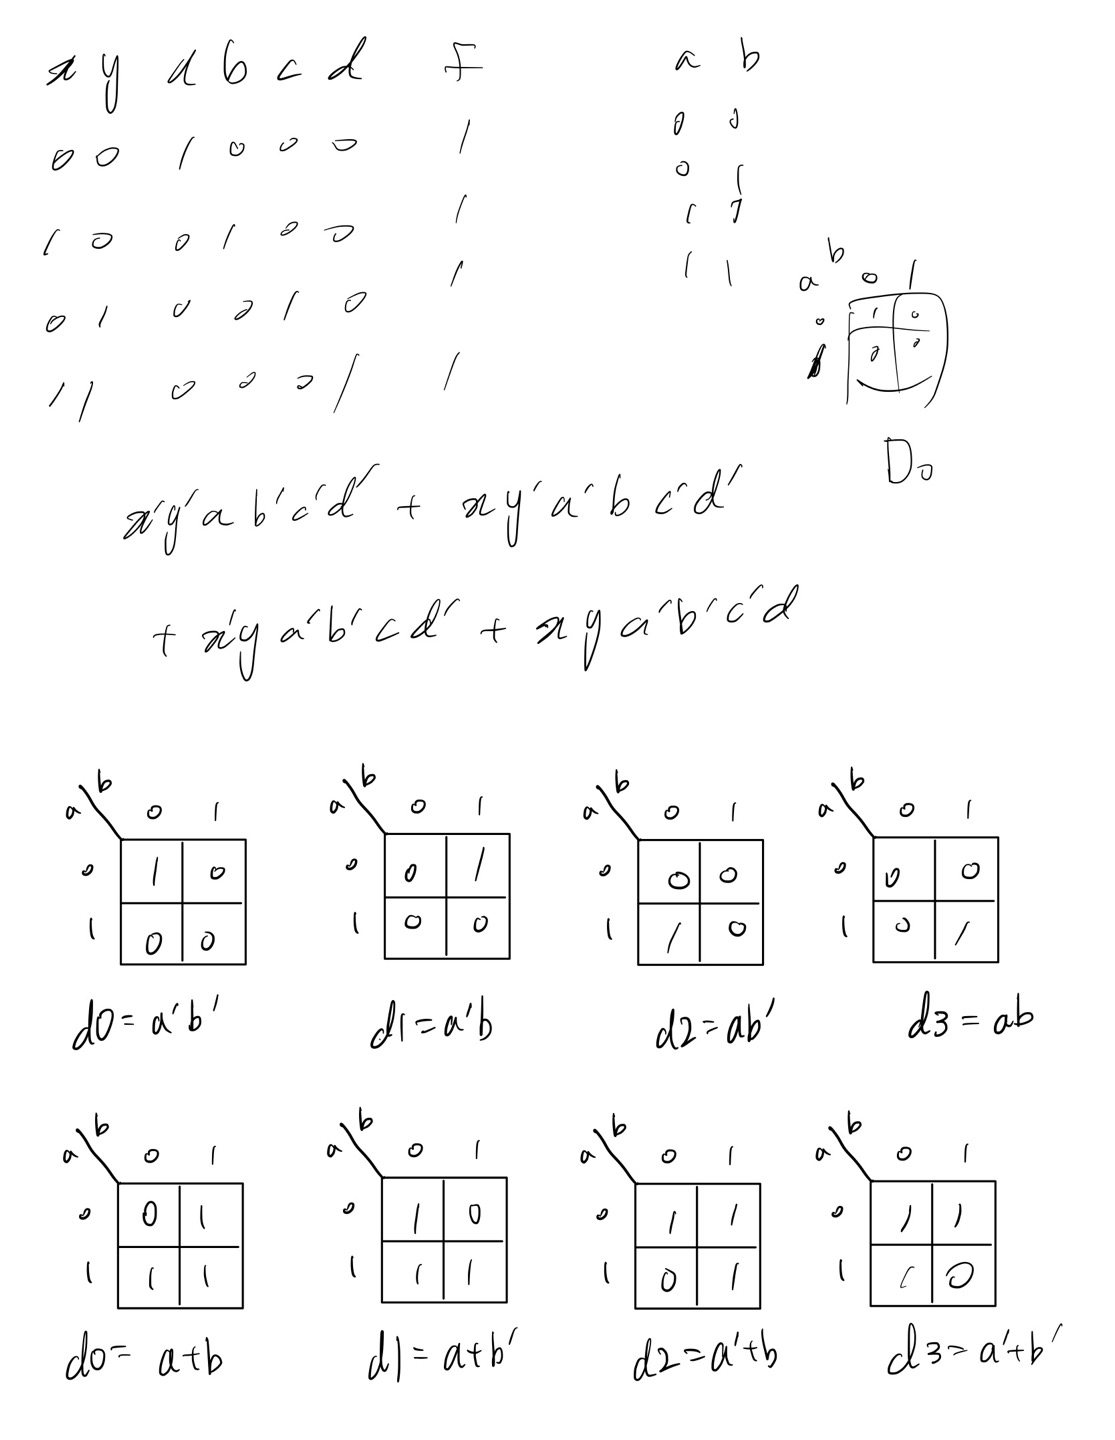 x y a b c d F
0 0 1 0 0 0 1
1 0 0 1 0 0 1
0 1 0 0 1 0 1
1 1 0 0 0 1 1
a b
0 0
0 1
1 1
1 1
b
a 0 1
0 1 0
0 0
D0
x'y'a b'c'd' + x y'a'b c'd'
+ x'y a'b'c d' + x y a'b'c'd
b
a 0 1
0 1 0
1 0 0
d0 = a'b'
b
a 0 1
0 0 1
1 0 0
d1 = a'b
b
a 0 1
0 0 0
1 1 0
d2 = ab'
b
a 0 1
0 0 0
1 0 1
d3 = ab
b
a 0 1
0 0 1
1 1 1
d0 = a+b
b
a 0 1
0 1 0
1 1 1
d1 = a+b'
b
a 0 1
0 1 1
1 0 1
d2 = a'+b
b
a 0 1
0 1 1
1 1 0
d3 = a'+b'